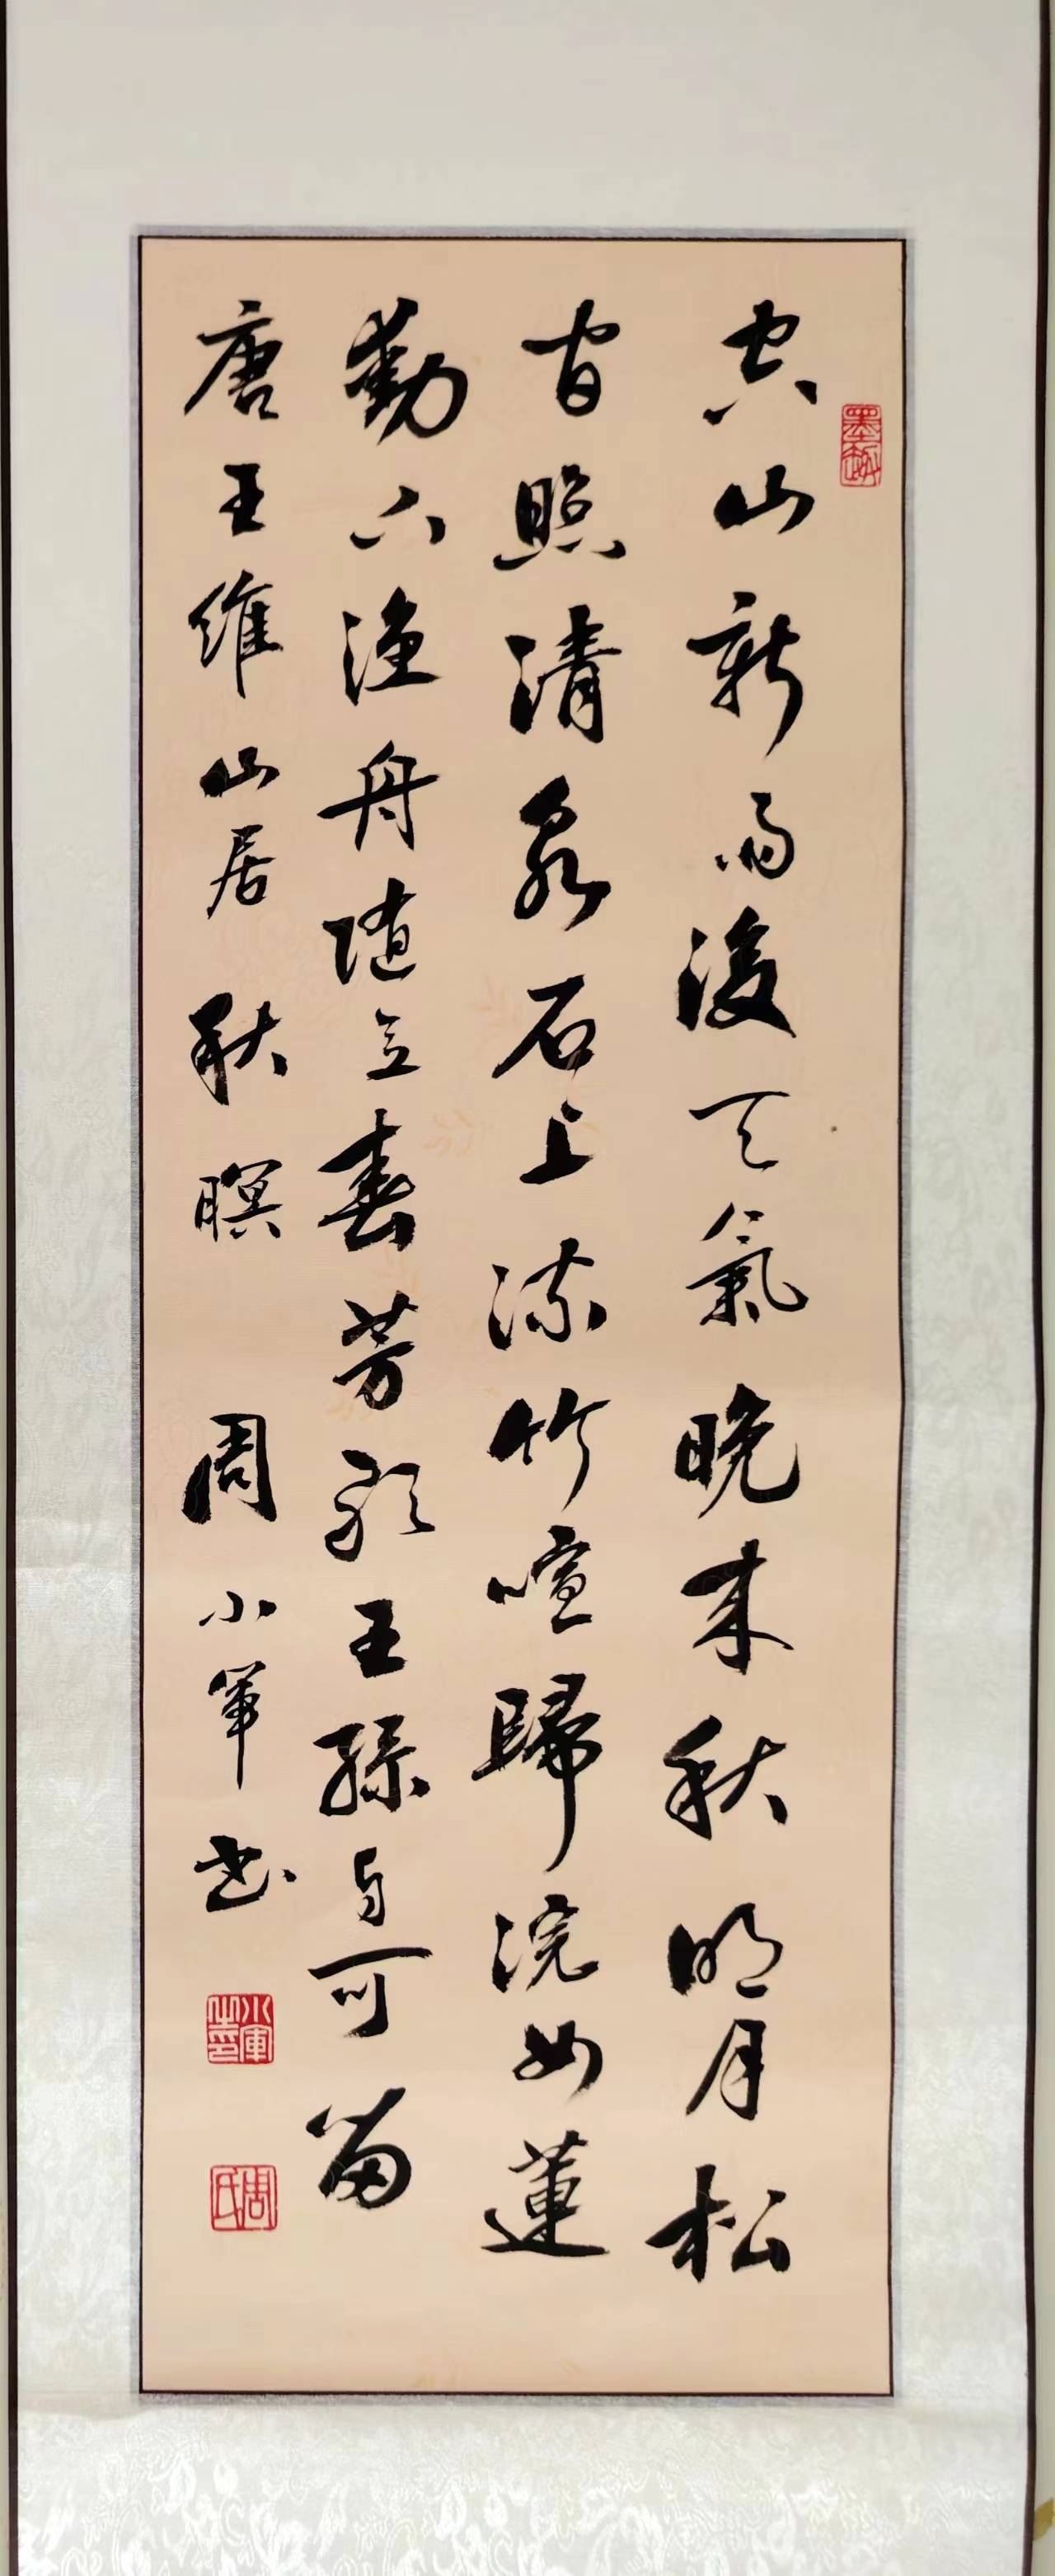 空山新雨後天氣晚來秋明月松
間照清泉石上流竹喧歸浣女蓮
動下漁舟隨意春芳歇王孫自可留
唐王維山居秋暝 周小軍書
小軍之印
周氏